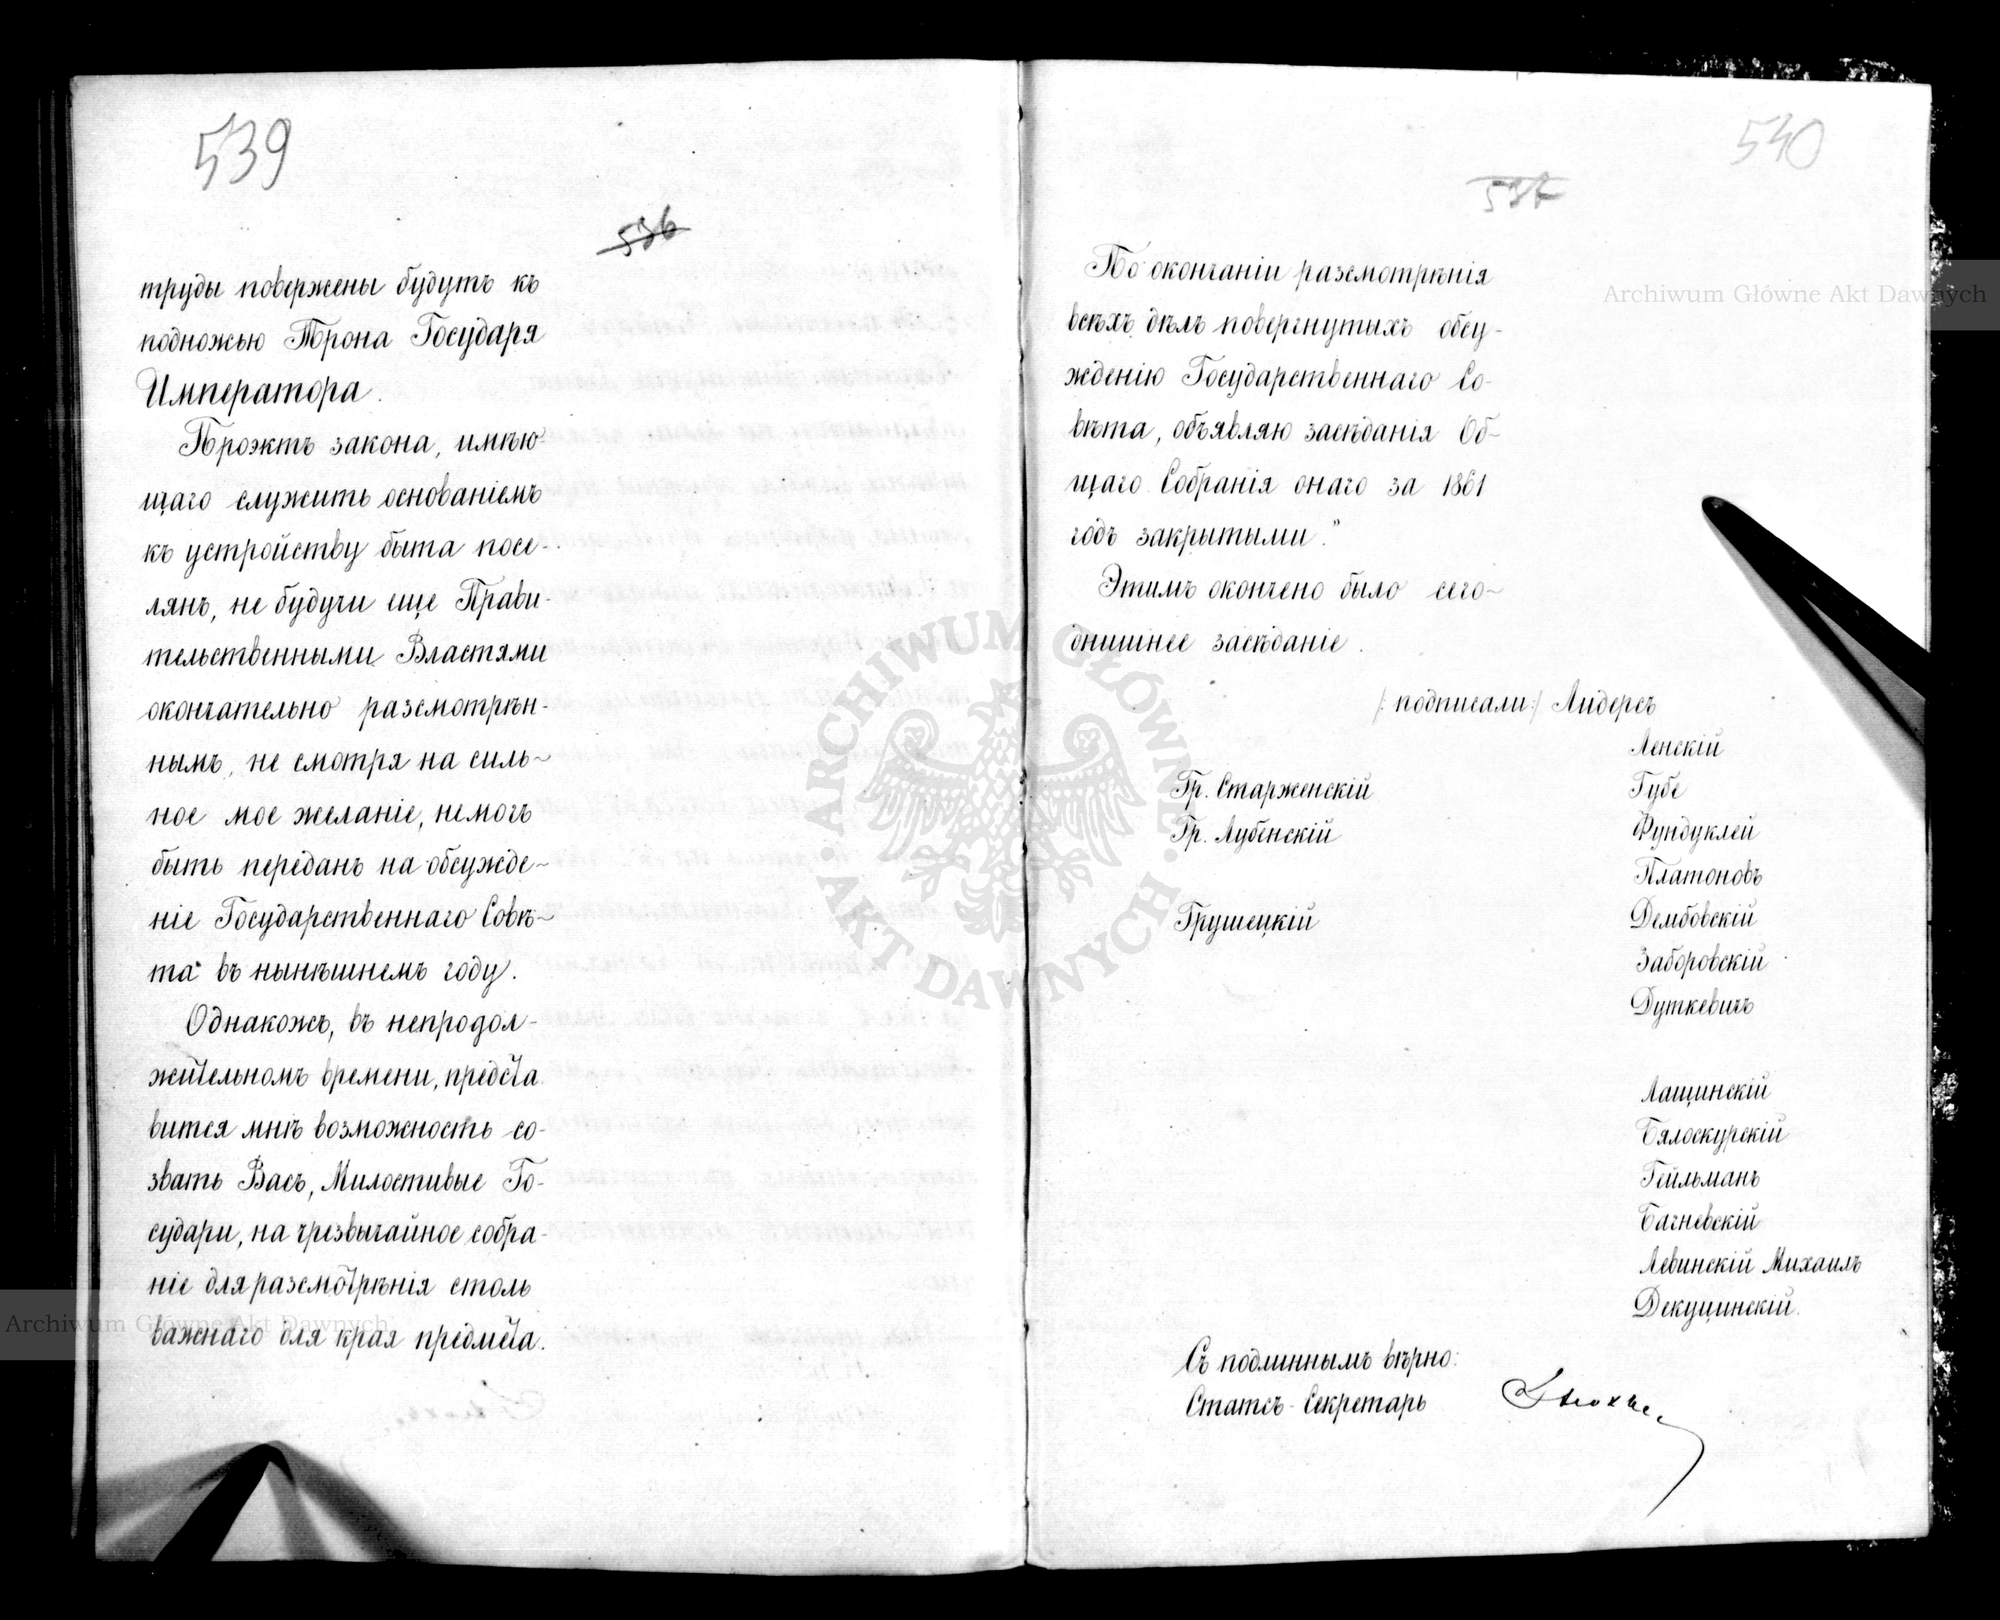 539
536
труды повержены будутъ къ
подножью Трона Государя
Императора.
Проэктъ закона, имѣю-
щаго служить основаніемъ
къ устройству быта посе-
лянъ, не будучи еще Прави-
тельственными Властями
окончательно разсмотрѣн-
нымъ, не смотря на силь-
ное мое желаніе, немогъ
быть переданъ на обсужде-
ніе Государственнаго Совѣ-
та въ нынѣшнемъ году.
Однакожъ, въ непродол-
жительномъ времени, предста
вится мнѣ возможность со-
звать Васъ, Милостивые Го-
судари, на чрезвычайное собра-
ніе для разсмотрѣнія столь
важнаго для края предмета.
540
537
По окончаніи разсмотрѣнія
всѣхъ дѣлъ повергнутыхъ обсу-
жденію Государственнаго Со-
вѣта, объявляю засѣданія Об-
щаго Собранія онаго за 1861
годъ закрытыми."
Этимъ окончено было сего-
днишнее засѣданіе.
/:подписали:/ Лидерсъ
Ленскій
Гр. Старженскій Губе
Гр. Лубенскій Фундуклей
Платоновъ
Грушецкій Дембовскій
Заборовскій
Дуткевичъ
Лащинскій
Бялоскурскій
Гейльманъ
Багневскій
Левинскій Михаилъ
Декуцинскій.
Съ подлиннымъ вѣрно:
Статсъ-Секретарь
Archiwum Główne Akt Dawnych
Archiwum Główne Akt Dawnych
ARCHIWUM GŁÓWNE AKT DAWNYCH